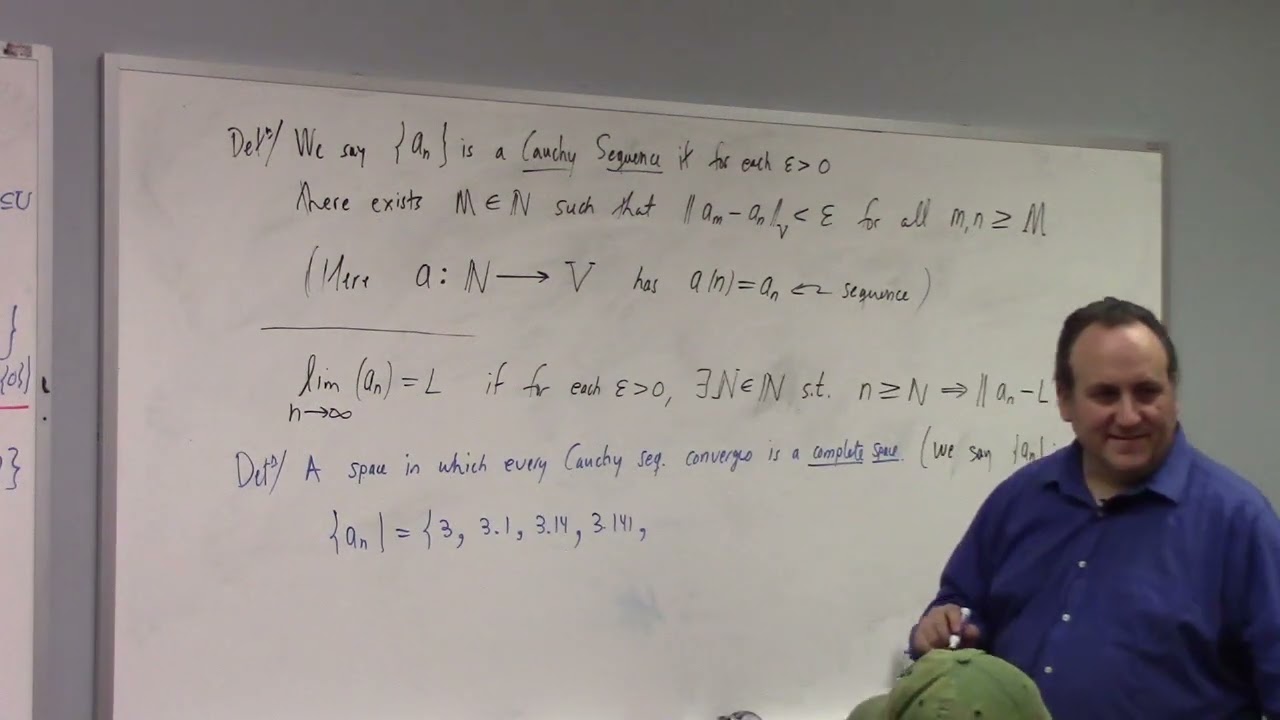 Defⁿ/ We say {aₙ} is a Cauchy Sequence if for each ε > 0
there exists M ∈ ℕ such that ‖aₘ − aₙ‖ᵥ < ε for all m,n ≥ M
(Here a : ℕ ⟶ V has a(n) = aₙ ↩ sequence)
lim (aₙ) = L if for each ε>0, ∃ N ∈ ℕ s.t. n ≥ N ⇒ ‖aₙ − L
n→∞
Defⁿ/ A space in which every Cauchy seq. converges is a complete space. (We say {aₙ}
{aₙ} = {3, 3.1, 3.14, 3.141,